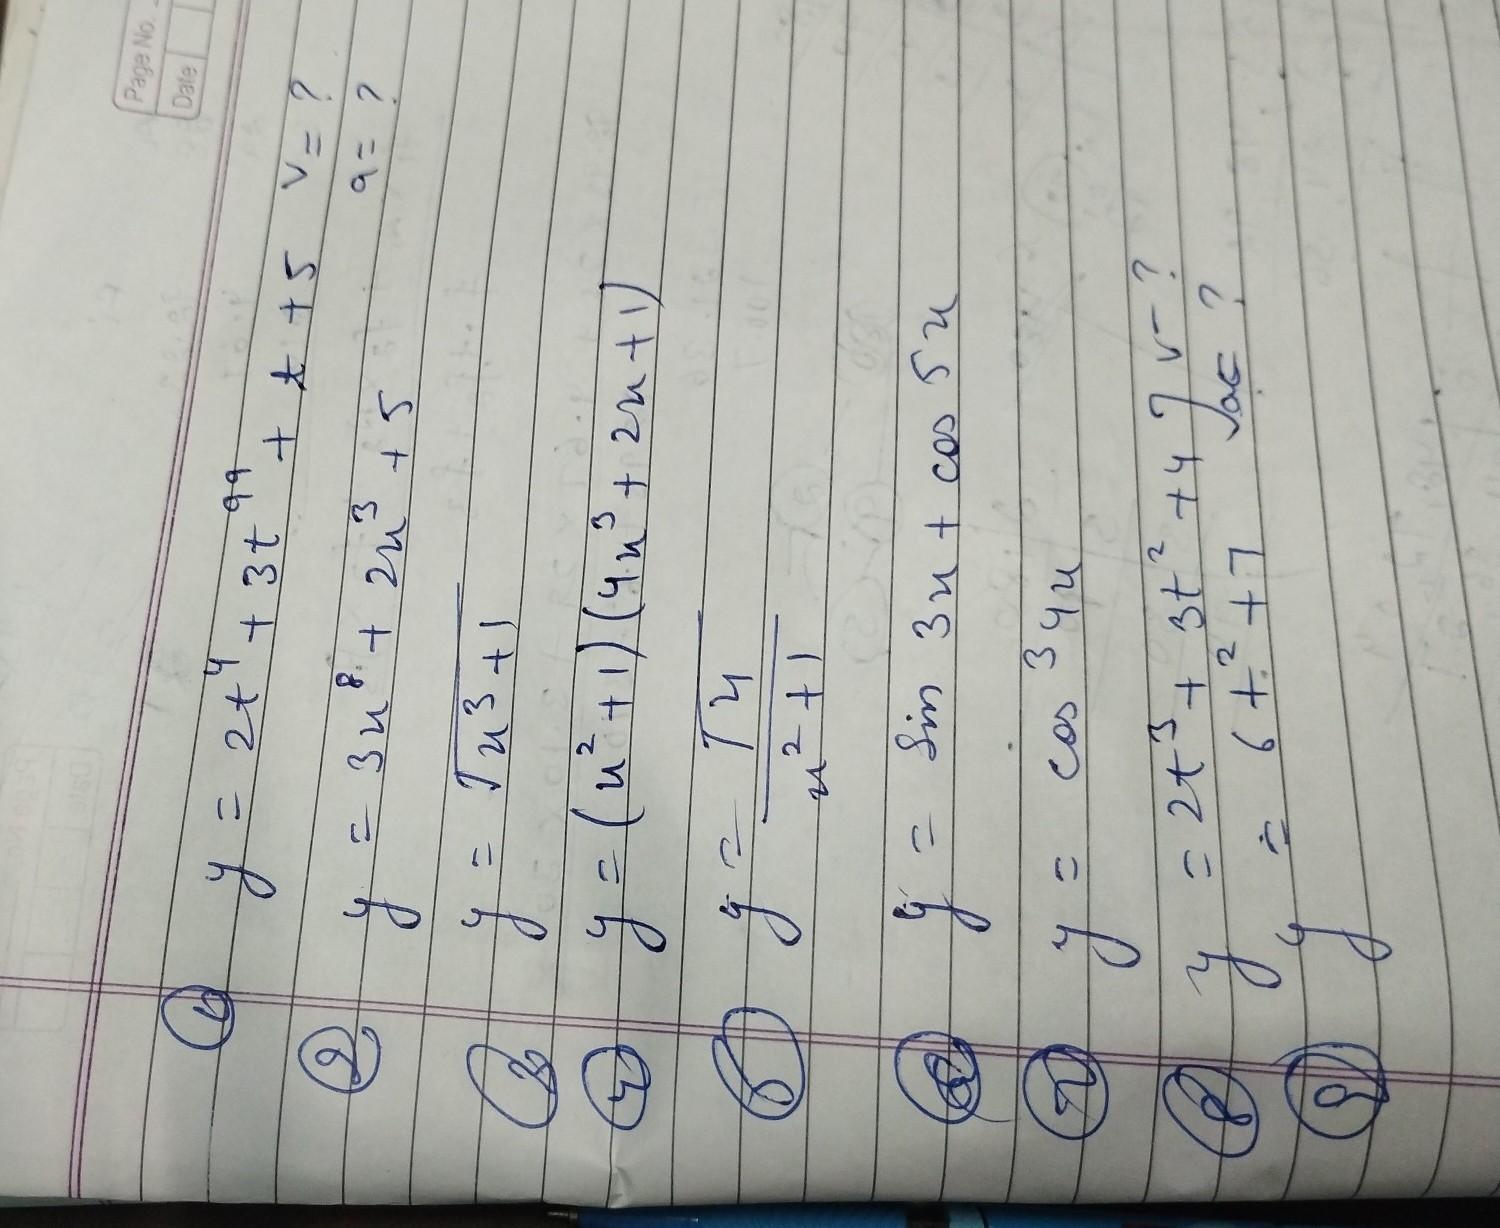 Page No.
Date
① y = 2t⁴ + 3t⁹⁹ + t + 5 v = ?
a = ?
② y = 3x⁸ + 2x³ + 5
③ y = √x³ + 1
④ y = (x² + 1) (4x³ + 2x + 1)
⑤ y = √x / x² + 1
⑥ y = Sin 3x + cos 5x
⑦ y = cos³ 4x
⑧ y = 2t³ + 3t² + 4 } v- ?
⑨ y = 6t² + 7 ac ?